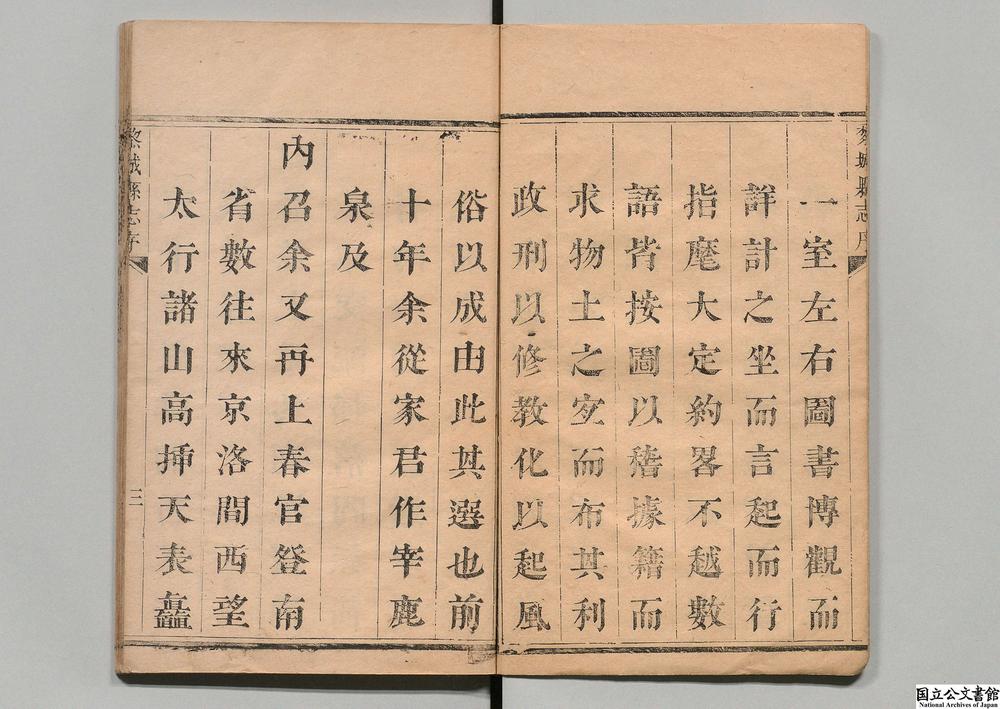 黎城縣志序
一室左右圖書博觀而
詳計之坐而言起而行
指麾大定約畧不越數
語皆按圖以稽據籍而
求物土之宐而布其利
政刑以修教化以起風
俗以成由此其選也前
十年余從家君作宰鹿
泉及
內召余又再上春官登南
省數往來京洛間西望
太行諸山高揷天表矗
黎城縣志序
三
国立公文書館
National Archives of Japan